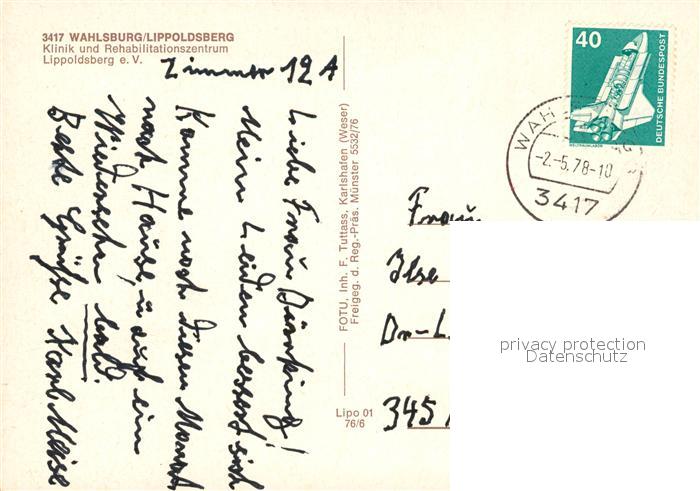 3417 WAHLSBURG/LIPPOLDSBERG
Klinik und Rehabilitationszentrum
Lippoldsberg e. V.
Zimmer 12 A
Liebe Frau
Mein Leiden bessert sich
Komme noch diesen Monat
nach Hause, u auf ein
Wiedersehn bald.
Beste Grüße Karl
FOTU, Inh. F. Tuttass, Karlshafen (Weser)
Freigeg. d. Reg.-Präs. Münster 5532/76
Lipo 01
76/6
40
DEUTSCHE BUNDESPOST
WELTRAUMLABOR
WAH
-2.-5.78-10
3417
Frau
Ilse
Dr.-L
345
privacy protection
Datenschutz